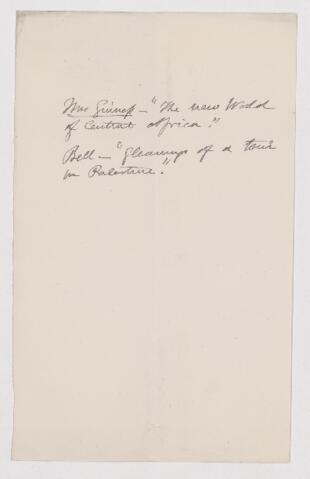 Mrs Guiness — "The new World
of Central Africa."
Bell — "Gleanings of a tour
in Palestine."